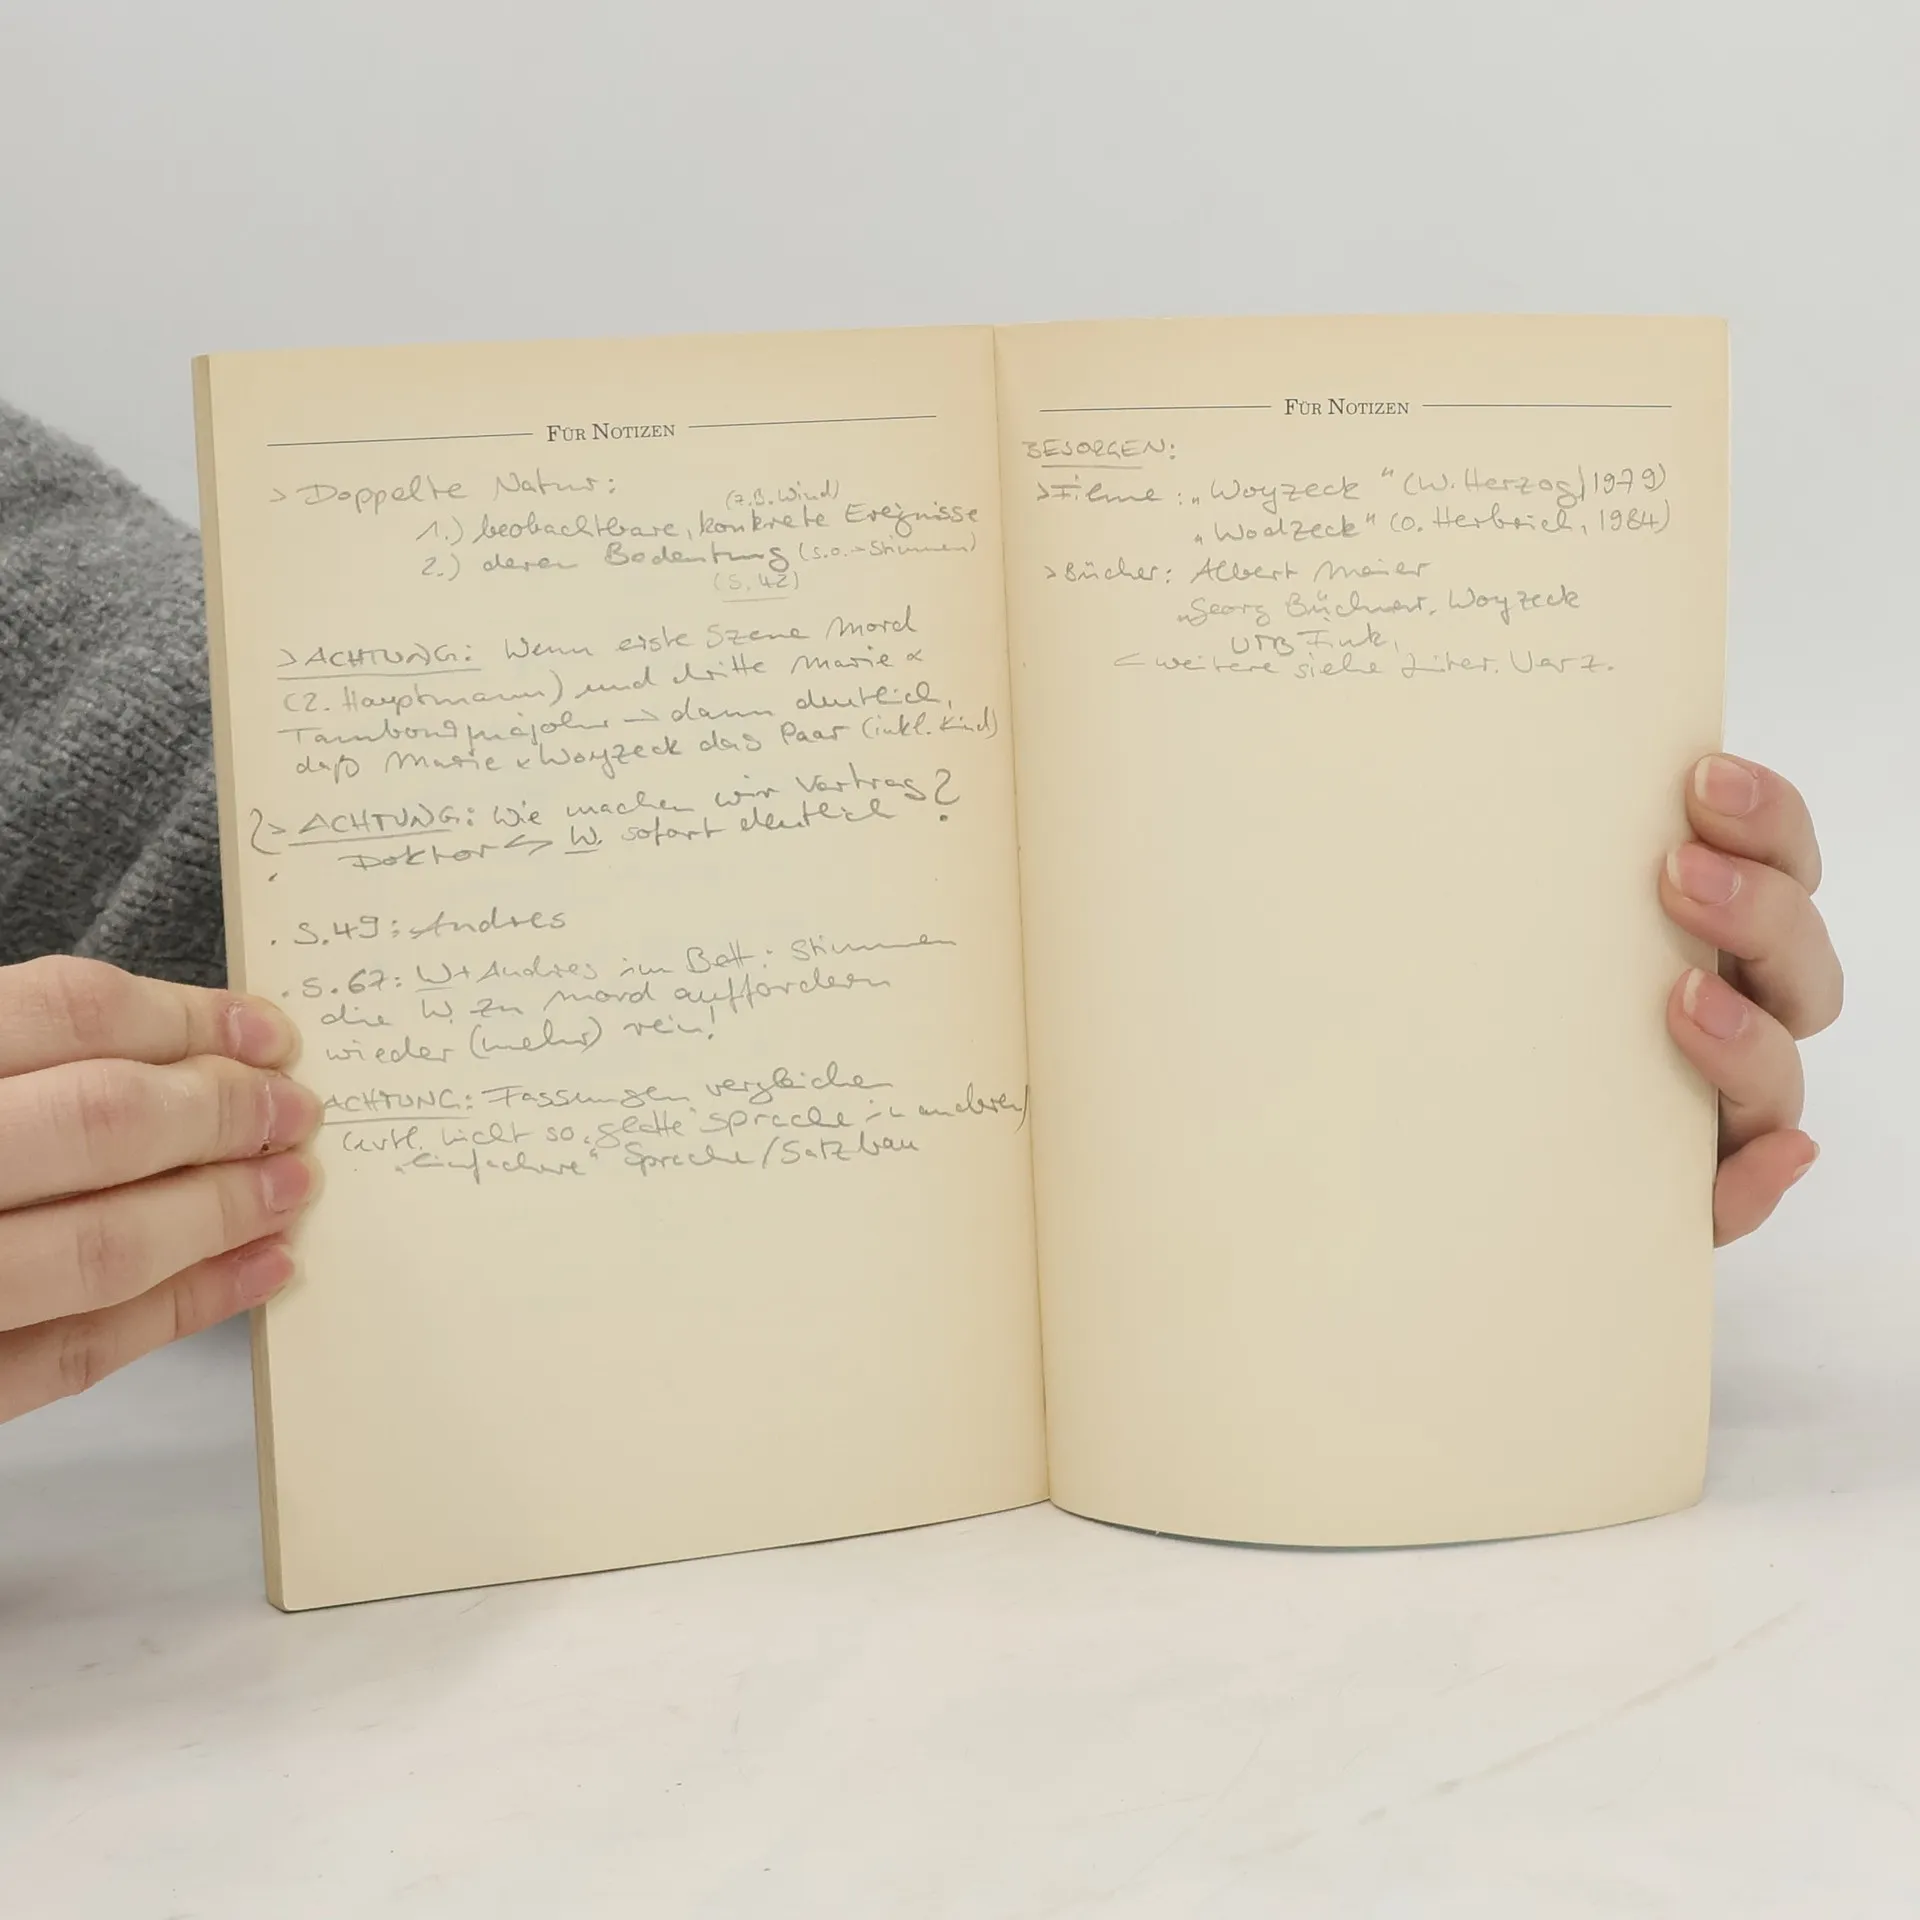 FÜR NOTIZEN
> Doppelte Natur:
(z.B. Wind)
1.) beobachtbare, konkrete Ereignisse
2.) deren Bedeutung (s.o. → Stimmen)
(S. 42)
> ACHTUNG: Wenn erste Szene Mord
(2. Hauptmann) und dritte Marie &
Tambourmajor → dann deutlich,
daß Marie & Woyzeck das Paar (inkl. Kind)
?> ACHTUNG: Wie machen wir Vertrag ?
Doktor <> W. sofort deutlich
. S. 49: Andres
. S. 67: W + Andres im Bett: Stimmen
die W. zu Mord auffordern
wieder (mehr) rein!
ACHTUNG: Fassungen vergleichen
(evtl. nicht so „glatte" Sprache in anderen)
„einfachere" Sprache/Satzbau
FÜR NOTIZEN
BESORGEN:
> Filme: „Woyzeck" (W. Herzog, 1979)
„Wodzeck" (O. Herbrich, 1984)
> Bücher: Albert Meier
„Georg Büchner, Woyzeck
UTB Fink,
< weitere siehe Liter. Verz.